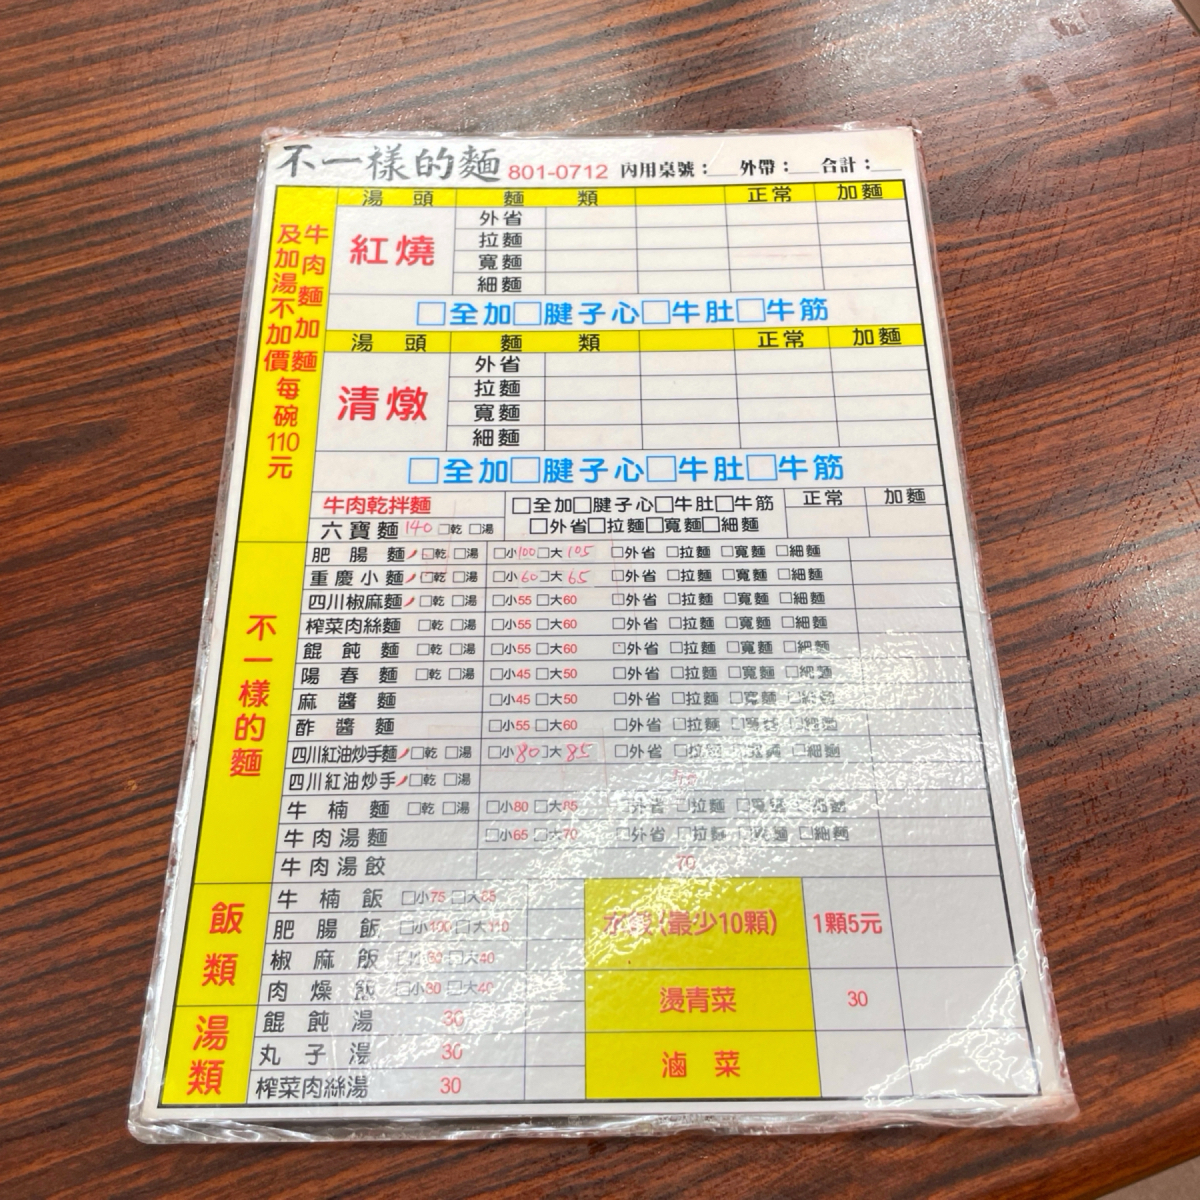 不一樣的麵 801-0712 內用桌號： 外帶： 合計：
牛肉麵加麵
及加湯不加價每碗110元
湯頭 麵類 正常 加麵
紅燒
外省
拉麵
寬麵
細麵
□全加□腱子心□牛肚□牛筋
湯頭 麵類 正常 加麵
清燉
外省
拉麵
寬麵
細麵
□全加□腱子心□牛肚□牛筋
牛肉乾拌麵 □全加□腱子心□牛肚□牛筋 正常 加麵
六寶麵 140 □乾 □湯 □外省□拉麵□寬麵□細麵
不一樣的麵
肥腸麵 □乾 □湯 □小100□大105 □外省 □拉麵 □寬麵 □細麵
重慶小麵 □乾 □湯 □小60□大65 □外省 □拉麵 □寬麵 □細麵
四川椒麻麵 □乾 □湯 □小55 □大60 □外省 □拉麵 □寬麵 □細麵
榨菜肉絲麵 □乾 □湯 □小55 □大60 □外省 □拉麵 □寬麵 □細麵
餛飩麵 □乾 □湯 □小55 □大60 □外省 □拉麵 □寬麵 □細麵
陽春麵 □乾 □湯 □小45 □大50 □外省 □拉麵 □寬麵 □細麵
麻醬麵 □小45 □大50 □外省 □拉麵 □寬麵 □細麵
酢醬麵 □小55 □大60 □外省 □拉麵 □寬麵 □細麵
四川紅油炒手麵 □乾 □湯 □小80 □大85 □外省 □拉麵 □寬麵 □細麵
四川紅油炒手 □乾 □湯
牛楠麵 □乾 □湯 □小80 □大85 □外省 □拉麵 □寬麵 □細麵
牛肉湯麵 □小65 □大70 □外省 □拉麵 □寬麵 □細麵
牛肉湯餃 70
飯類
牛楠飯 □小75 □大85
肥腸飯 □小100□大110
椒麻飯 □大40
肉燥飯 □小30 □大40
湯類
餛飩湯 30
丸子湯 30
榨菜肉絲湯 30
水餃(最少10顆) 1顆5元
燙青菜 30
滷菜